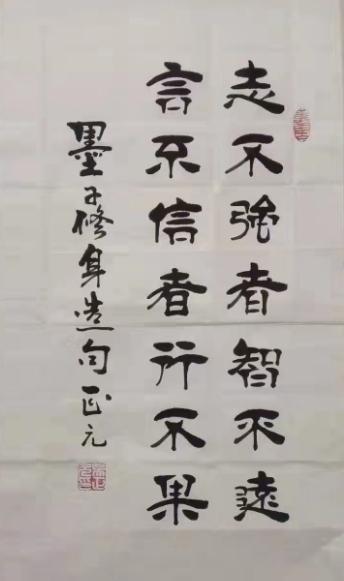 志不強者智不達
言不信者行不果
墨子修身选句 正元